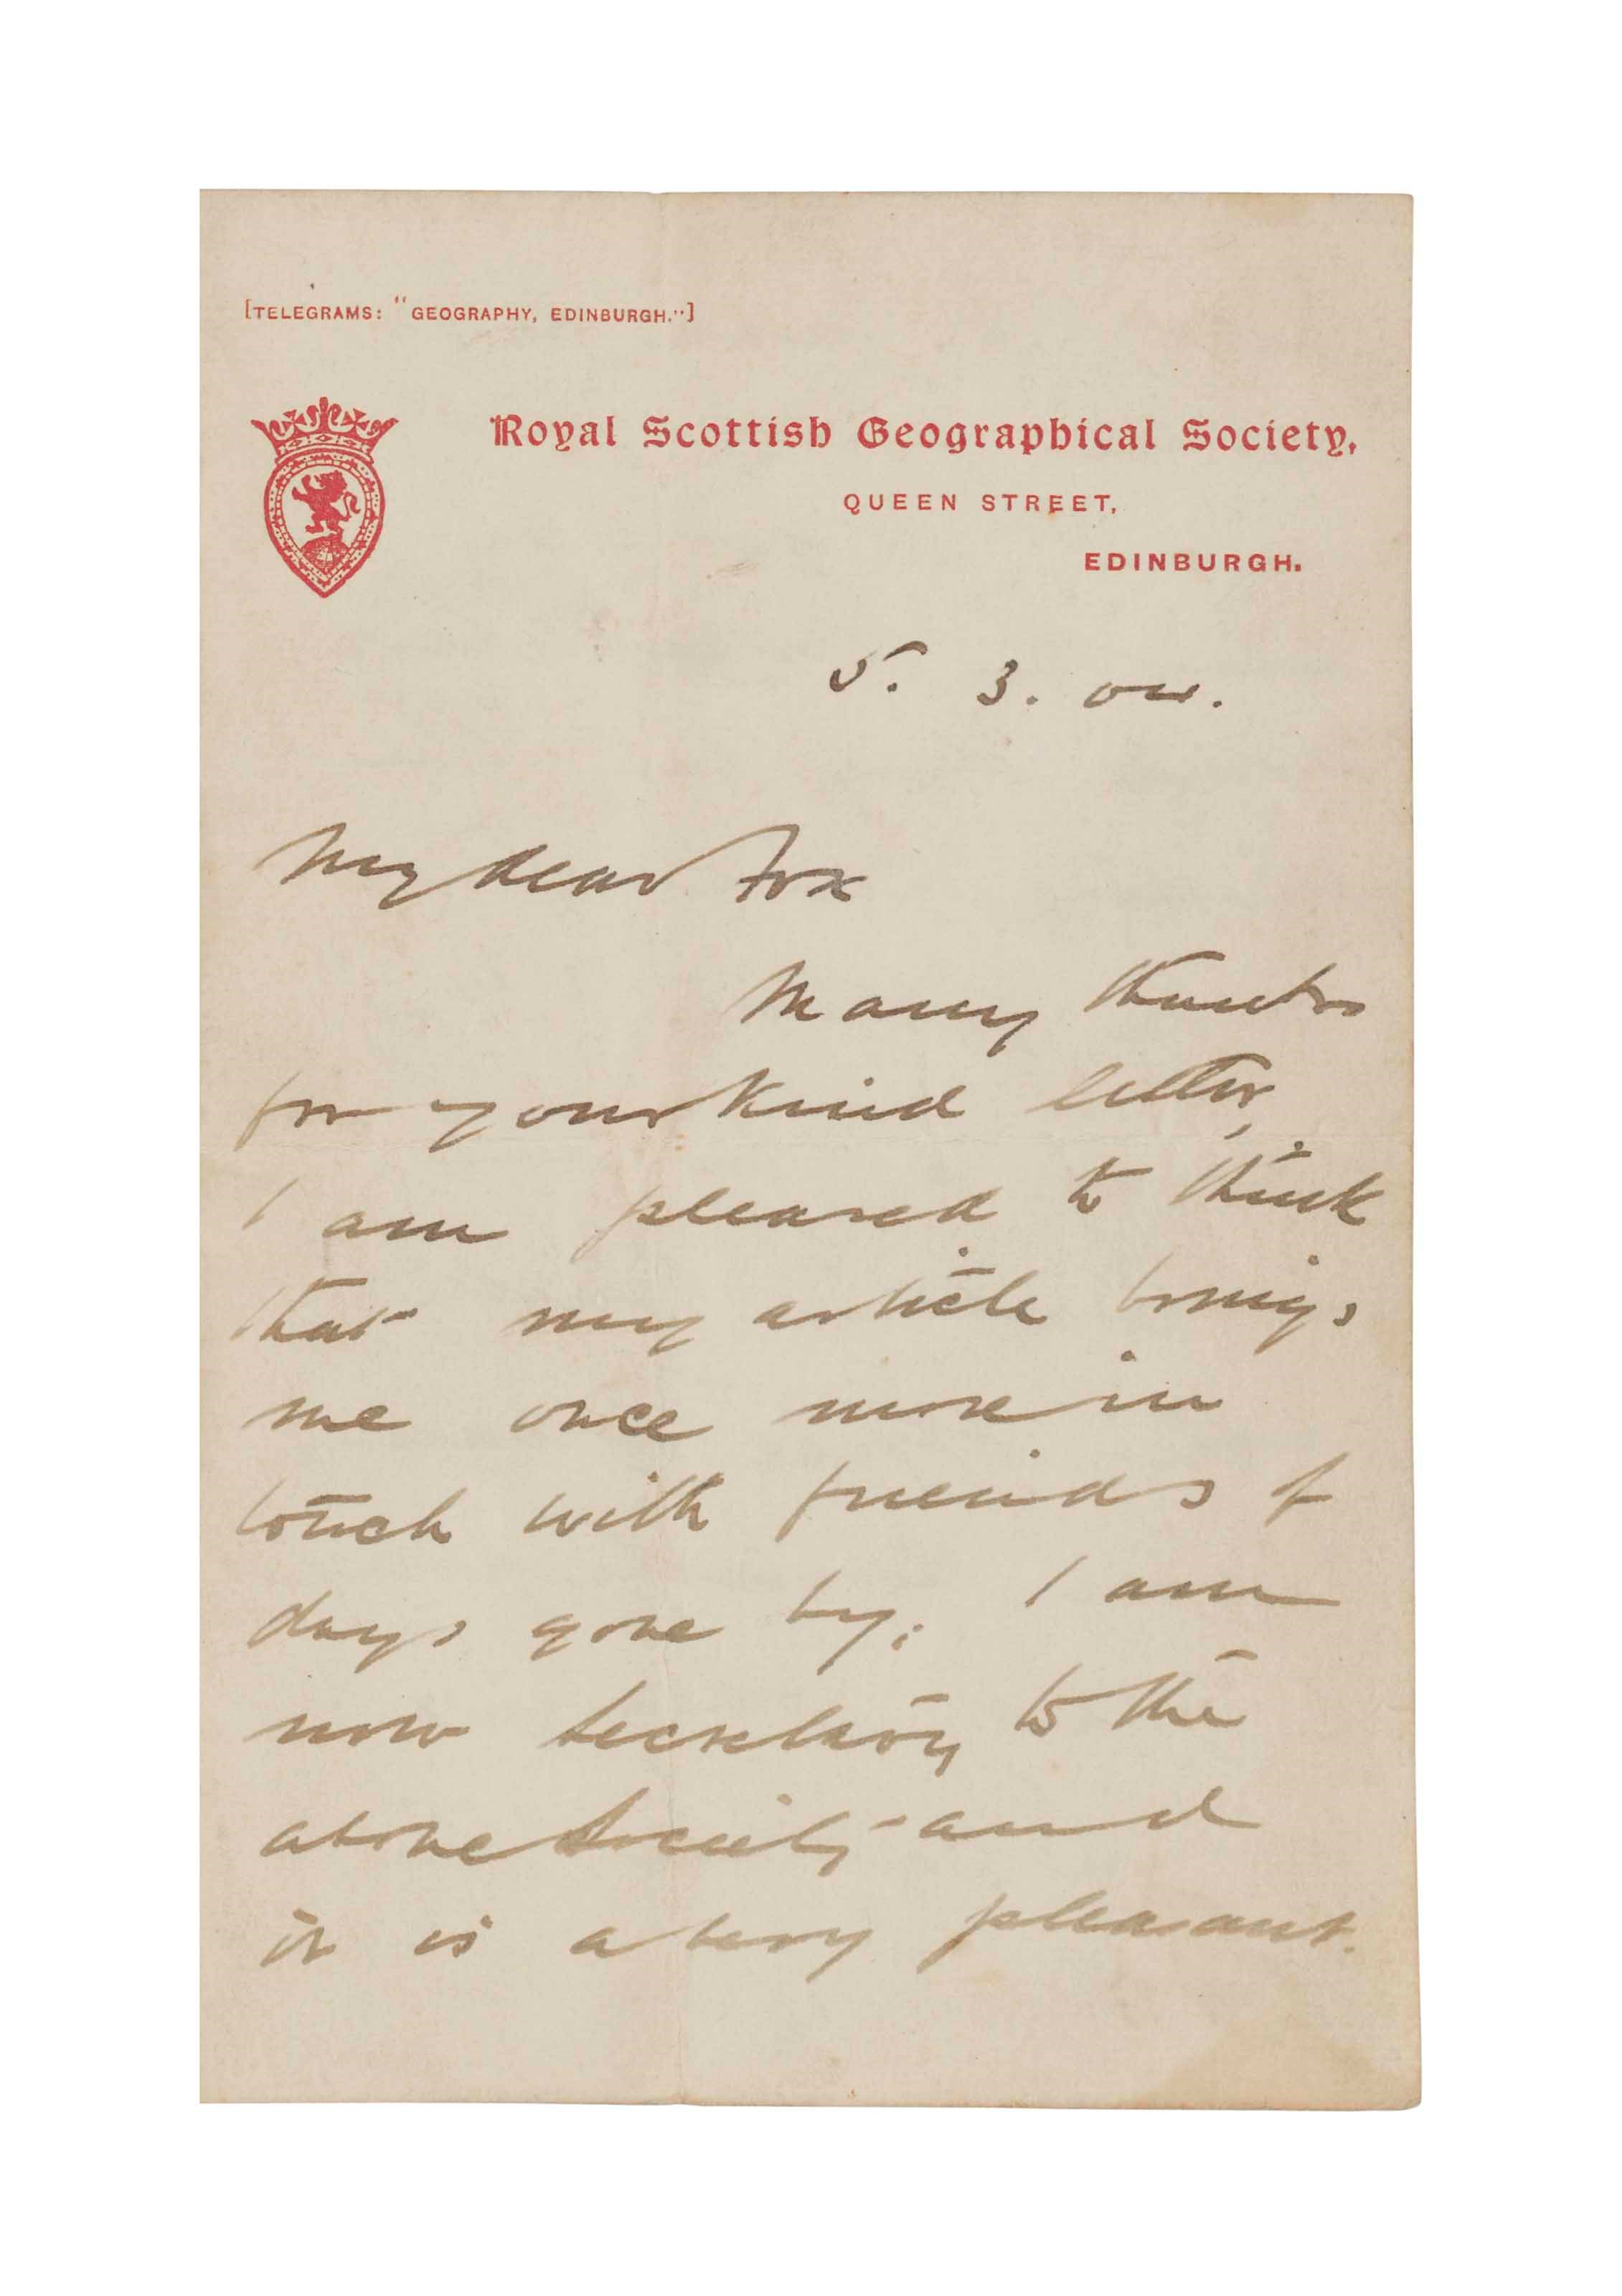 [TELEGRAMS: "GEOGRAPHY, EDINBURGH."]
Royal Scottish Geographical Society,
QUEEN STREET,
EDINBURGH.
5. 3. 04.
My dear Fox
Many thanks
for your kind letter,
I am pleased to think
that my article brings
me once more in
touch with friends of
days gone by. I am
now Secretary to the
above Society and
it is a very pleasant